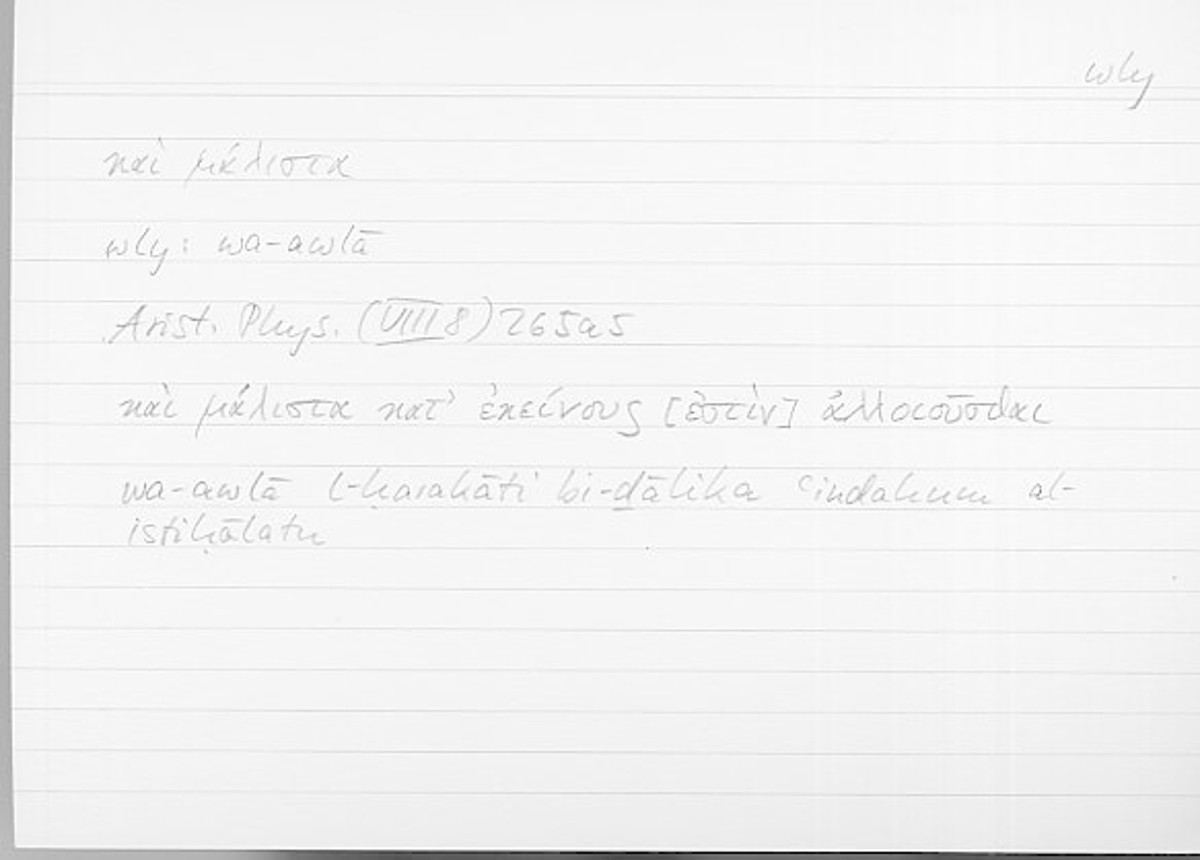 wly
καὶ μάλιστα
wly: wa-awlā
Arist. Phys. (VIII 8) 265a5
καὶ μάλιστα κατ᾽ ἐκείνους [ἐστὶν] ἀλλοιοῦσθαι
wa-awlā l-ḥarakāti bi-ḏālika ʿindahum al-
istiḥālatu